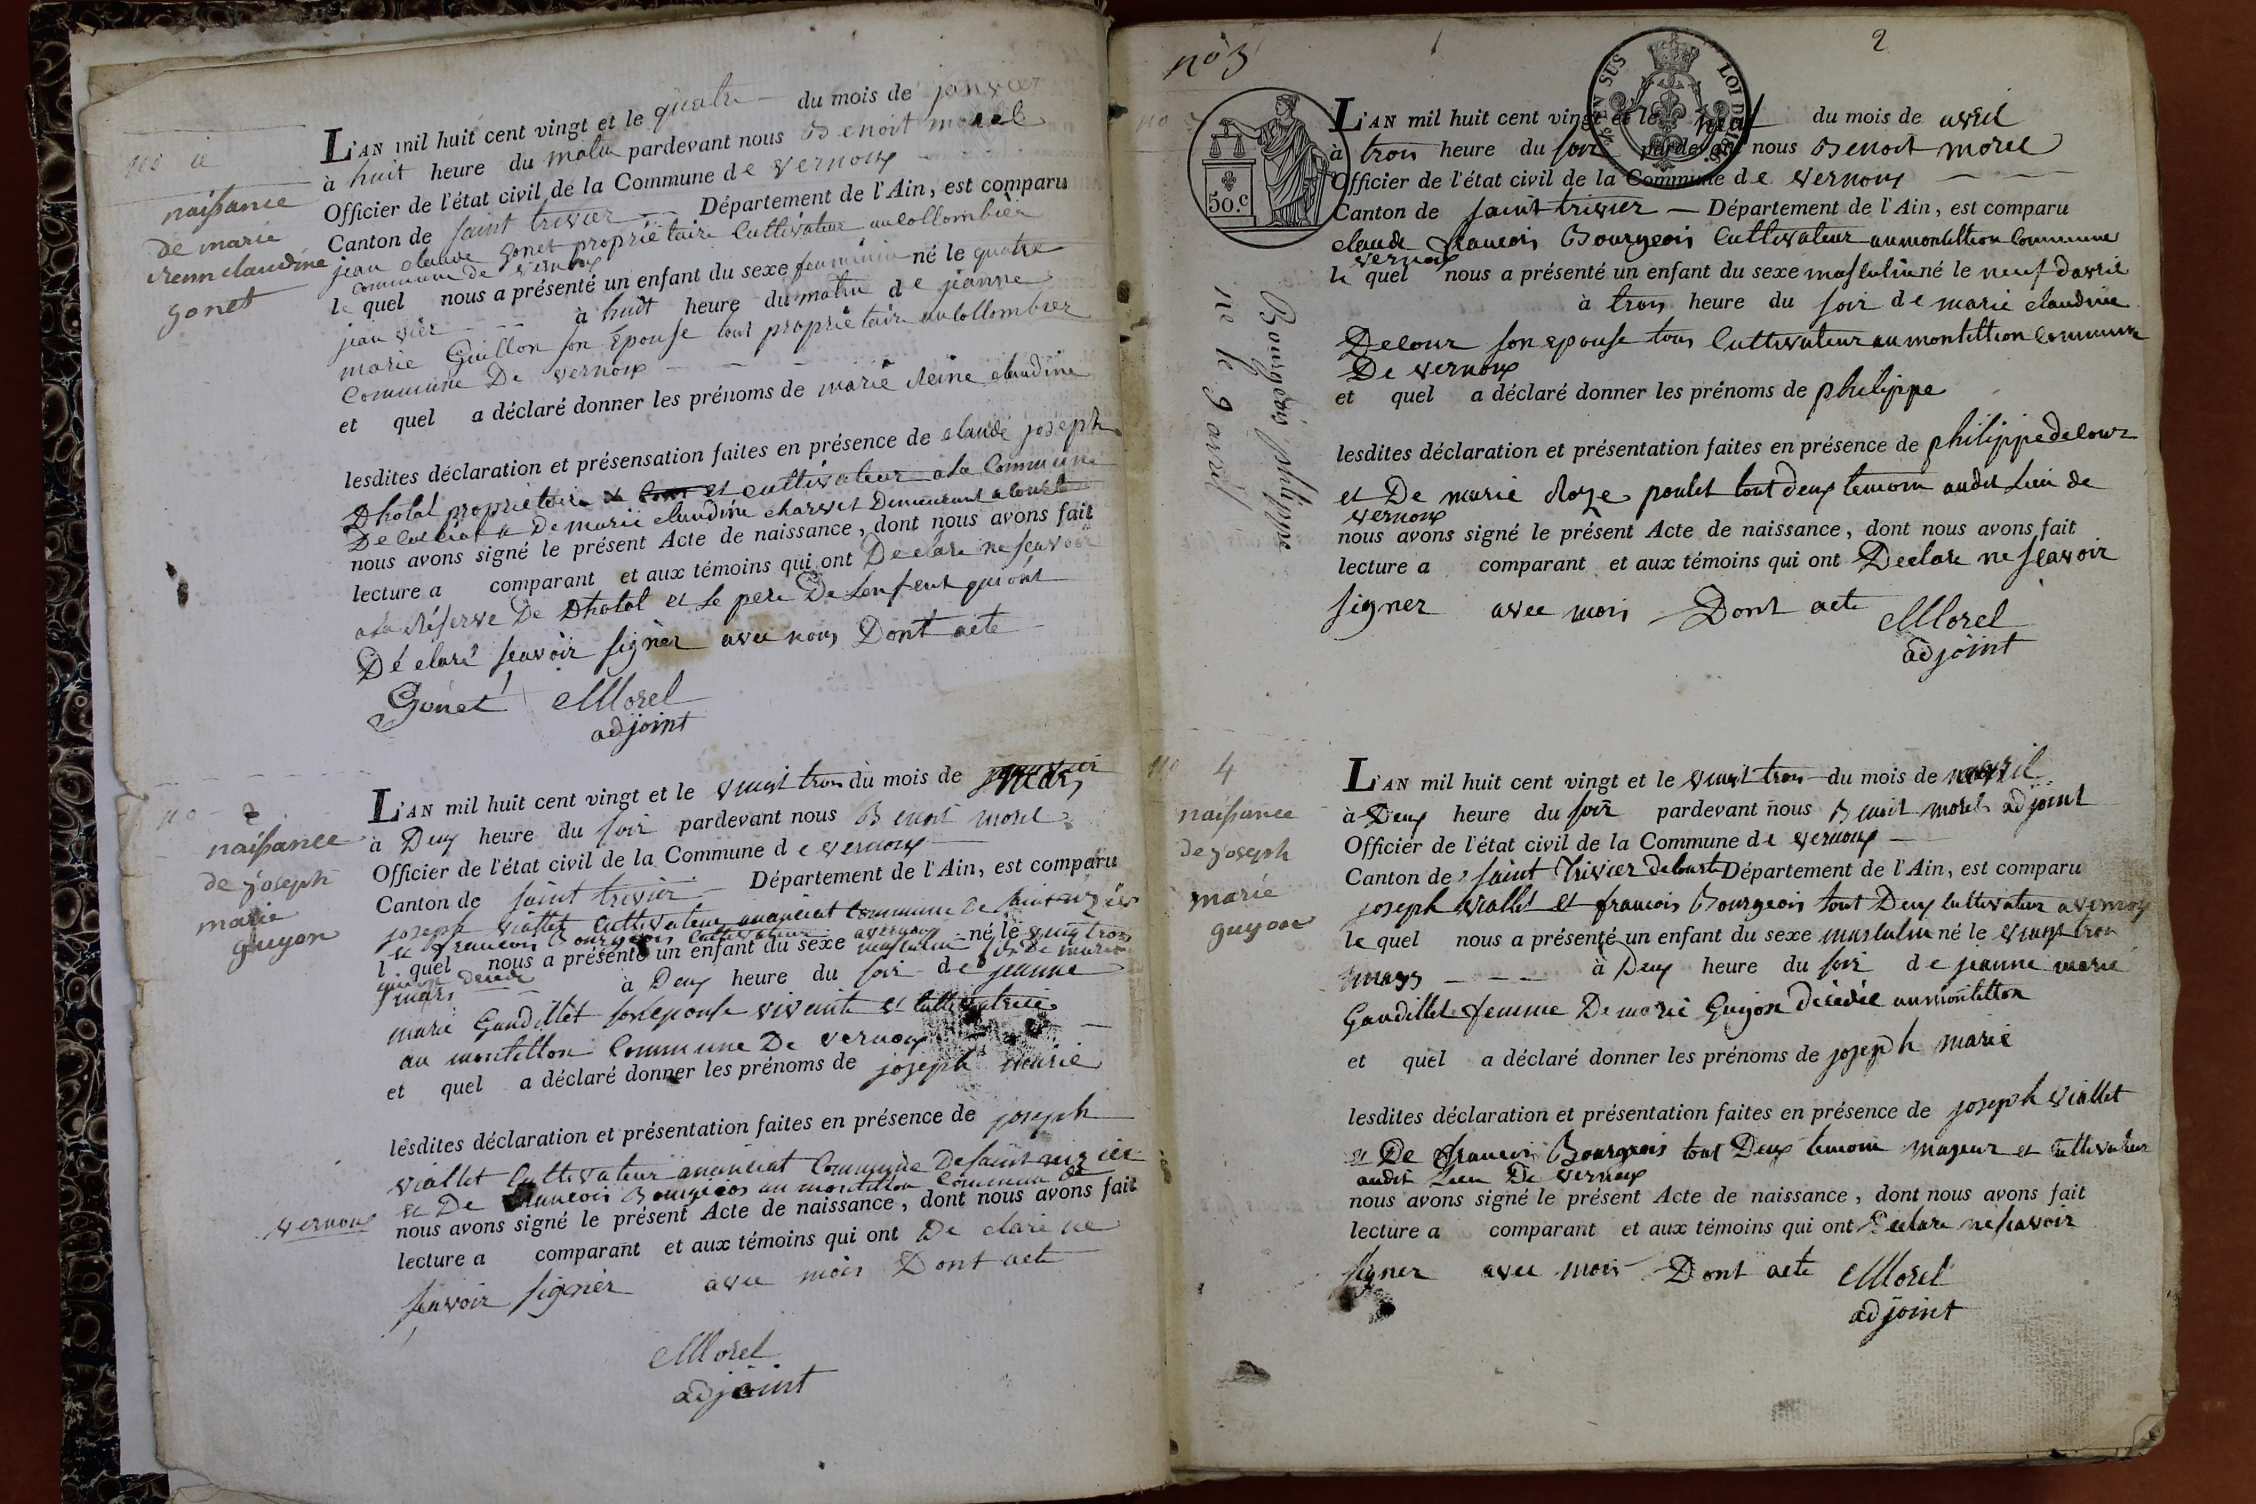 no 1e
naissance
de marie
reinn claudine
gonet
L'AN mil huit cent vingt et le quatre du mois de janvier
à huit heure du matin pardevant nous Benoit morel
Officier de l'état civil de la Commune de vernoux
Canton de saint trivier Département de l'Ain, est comparu
jean claude gonet propriétaire cultivateur au collombier
commune de vernoux
le quel nous a présenté un enfant du sexe feminin né le quatre
janvier à huit heure du matin de jeanne
marie Guillon son Epouse tout propriétaire au collombier
Commune De vernoux
et quel a déclaré donner les prénoms de marie Reine claudine
lesdites déclaration et présensation faites en présence de claude joseph
Dhotal proprietaire et cultivateur a la Commune
De et De marie claudine charvet Demeurant a
nous avons signé le présent Acte de naissance, dont nous avons fait
lecture a comparant et aux témoins qui ont Declare ne scavoir
a la Réserve De Dhotal et le pere De Lenfent qui ont
Déclaré scavoir signer avec nous Dont acte
Gonet Morel
adjoint
no 2
naissance
de joseph
marie
guyon
L'AN mil huit cent vingt et le vingt trois du mois de mars
à Deux heure du soir pardevant nous Benoit morel
Officier de l'état civil de la Commune de vernoux
Canton de saint trivier Département de l'Ain, est comparu
joseph viallet Cultivateur commune De saint nizier
et francois Bourgeois cultivateur a vernoux
l quel nous a présenté un enfant du sexe masculin né le vingt trois
mars à Deux heure du soir de jeanne
marie Gaudillet son epouse vivante et cultivatrice
au montillon Commune De vernoux
et quel a déclaré donner les prénoms de joseph marie
lesdites déclaration et présentation faites en présence de joseph
viallet Cultivateur Commune De saint nizier
et De francois Bourgeois au montillon Commune de
vernoux
nous avons signé le présent Acte de naissance, dont nous avons fait
lecture a comparant et aux témoins qui ont De clare ne
scavoir signer avec mois Dont acte
Morel
adjoint
no 3
2
EN SUS
LOI DE 1816
50.c
Bourgeois philippe
né le 9 avril
L'AN mil huit cent vingt et le neuf du mois de avril
à trois heure du soir pardevant nous Benoit morel
Officier de l'état civil de la Commune de vernoux
Canton de saint trivier Département de l'Ain, est comparu
claude francois Bourgeois Cultivateur au montillion Commune
vernoux
le quel nous a présenté un enfant du sexe masculin né le neuf davril
à trois heure du soir de marie claudine
Delour son epouse tous Cultivateur au montillion Commune
De vernoux
et quel a déclaré donner les prénoms de philippe
lesdites déclaration et présentation faites en présence de philippe delour
et De marie Roze poulet tout deux temoin audit Lieu de
vernoux
nous avons signé le présent Acte de naissance, dont nous avons fait
lecture a comparant et aux témoins qui ont Declare ne scavoir
signer avec mois Dont acte Morel
adjoint
no 4
naissance
de joseph
marie
guyon
L'AN mil huit cent vingt et le vingt trois du mois de avril
à Deux heure du soir pardevant nous Benoit morel adjoint
Officier de l'état civil de la Commune de vernoux
Canton de saint Trivier de Courte Département de l'Ain, est comparu
joseph viallet et francois Bourgeois tout Deux cultivateur a vernoux
le quel nous a présenté un enfant du sexe masculin né le vingt trois
mars à Deux heure du soir de jeanne marie
Gaudillet femme De marie Guyon décédé au montillon
et quel a déclaré donner les prénoms de joseph marie
lesdites déclaration et présentation faites en présence de joseph viallet
et De francois Bourgeois tout Deux temoin majeur et cultivateur
audit Lieu De vernoux
nous avons signé le présent Acte de naissance, dont nous avons fait
lecture a comparant et aux témoins qui ont Declare ne scavoir
signer avec mois Dont acte Morel
adjoint